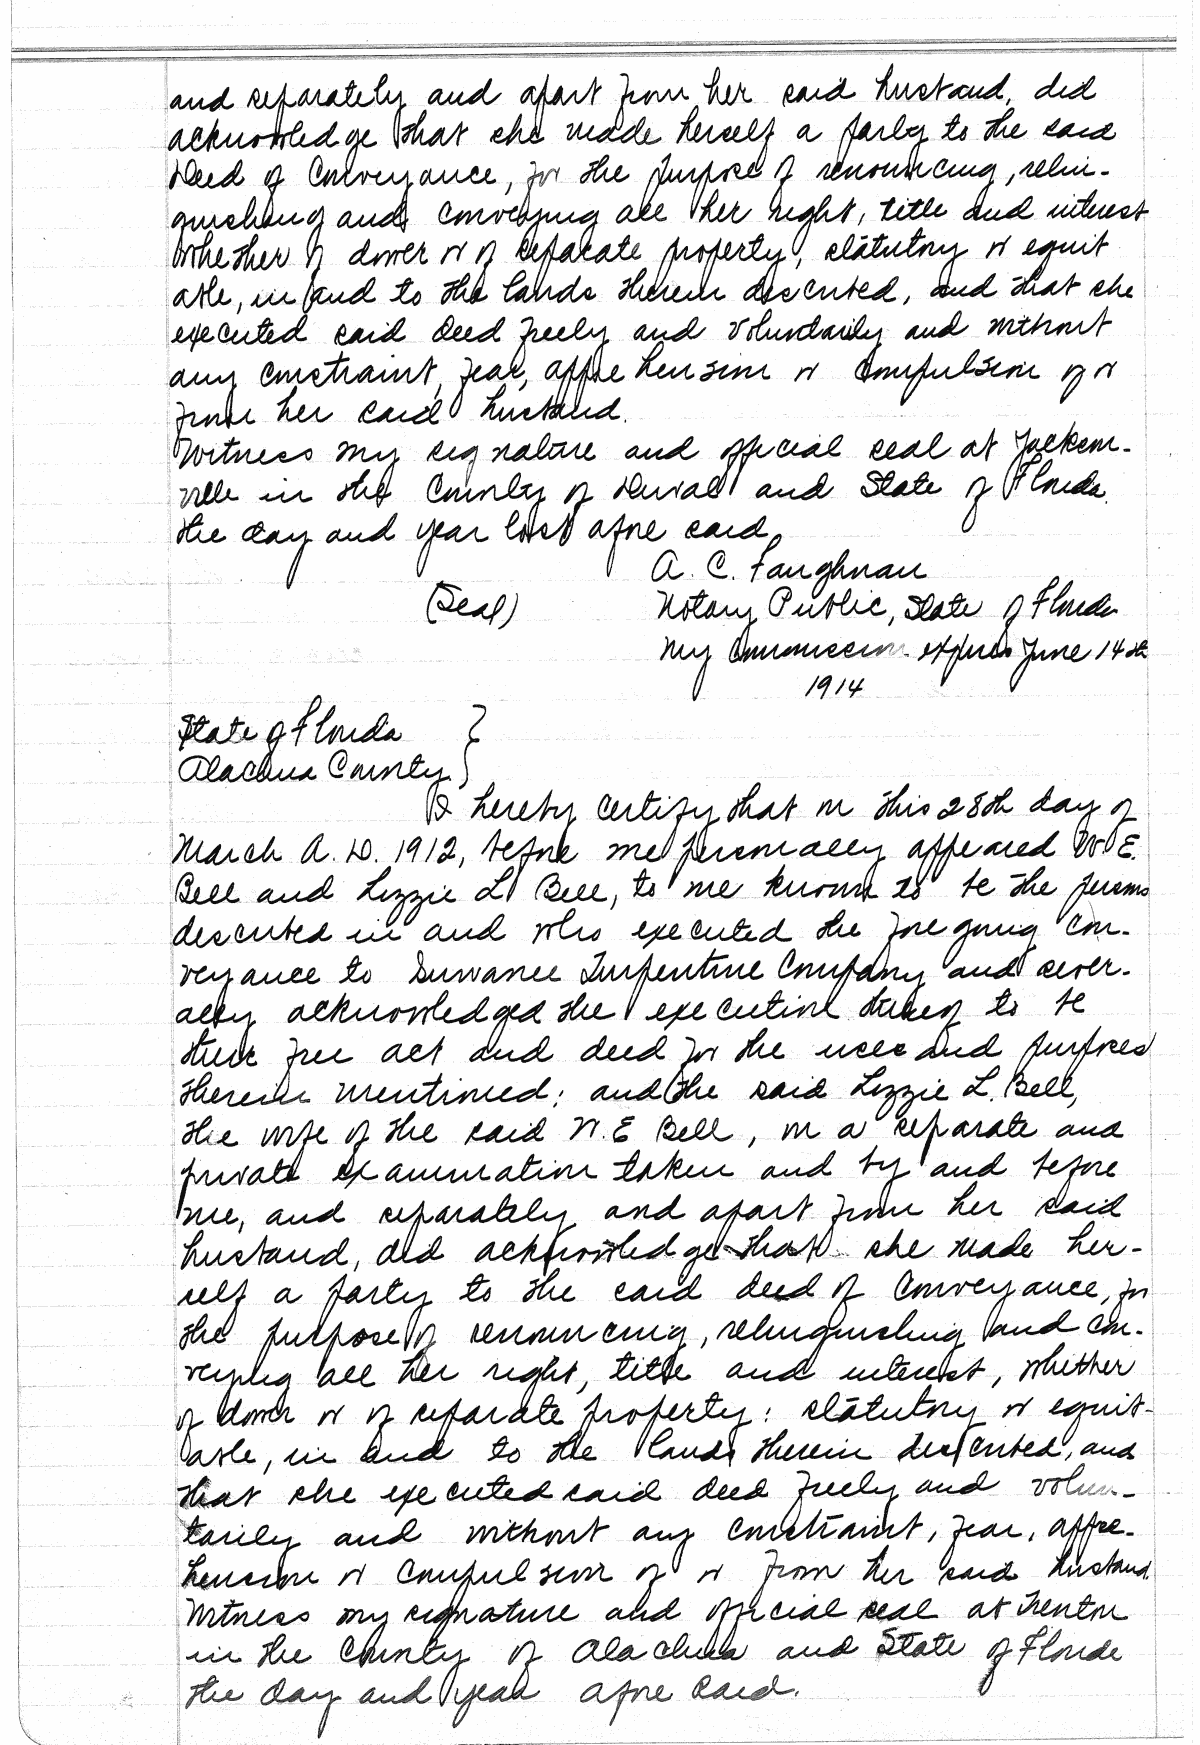 and separately and apart from her said husband, did
acknowledge that she made herself a party to the said
Deed of Conveyance, for the purpose of renouncing, relin-
quishing and conveying all her right, title and interest
whether of dower or of separate property, statutory or equit
able, in and to the lands therein described, and that she
executed said deed freely and voluntarily and without
any constraint, fear, apprehension or compulsion of or
from her said husband.
Witness my signature and official seal at Jackson-
ville in the County of Duval and State of Florida.
the day and year last afore said.
A. C. Faughnan
(Seal) Notary Public, State of Florida
My Commission expires June 14th
1914
State of Florida }
Alachua County }
I hereby certify that on this 28th day of
March A. D. 1912, before me personally appeared W. E.
Bell and Lizzie L. Bell, to me known to be the persons
described in and who executed the foregoing con-
veyance to Suwanee Turpentine Company and sever-
ally acknowledged the execution thereof to be
their free act and deed for the uses and purposes
therein mentioned; and the said Lizzie L. Bell,
the wife of the said W. E Bell, on a separate and
private examination taken and by and before
me, and separately and apart from her said
husband, did acknowledge that she made her-
self a party to the said deed of conveyance, for
the purpose of renouncing, relinquishing and con-
veying all her right, title and interest, whether
of dower or of separate property: statutory or equit-
able, in and to the lands therein described, and
that she executed said deed freely and volun-
tarily and without any constraint, fear, appre-
hension or compulsion of or from her said husband.
Witness my signature and official seal at Trenton
in the County of Alachua and State of Florida
the day and year afore said.